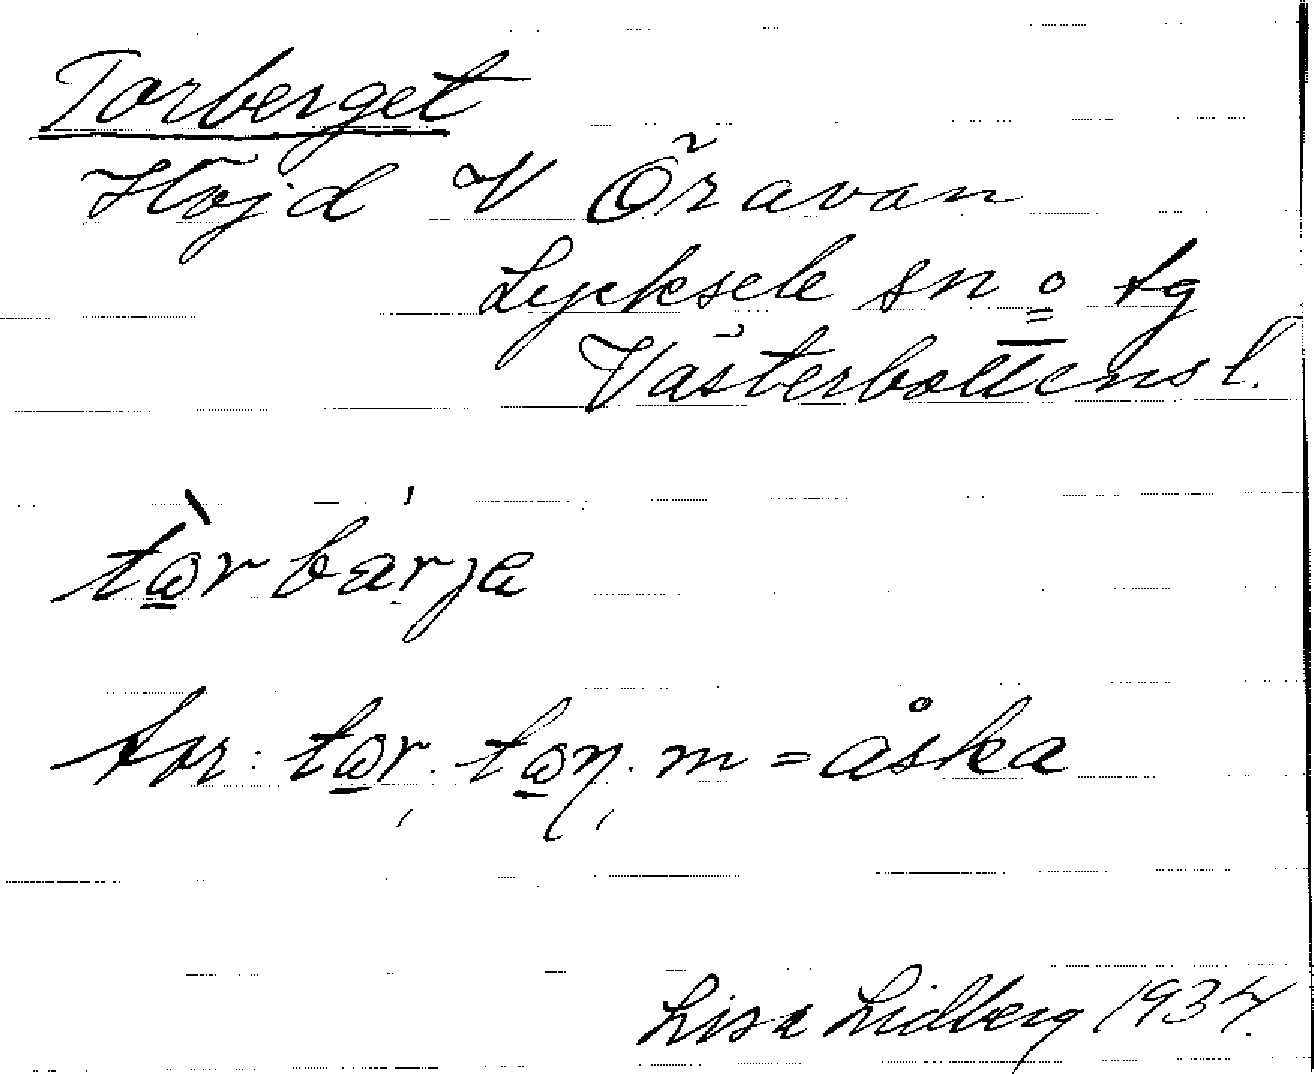 Torberget
Höjd V Öravan
Lycksele sn o tg
Västerbottens l.
tɷ̀r bárja
tor: tɷr. tɷn. m = åska
Lisa Lidberg 1937.